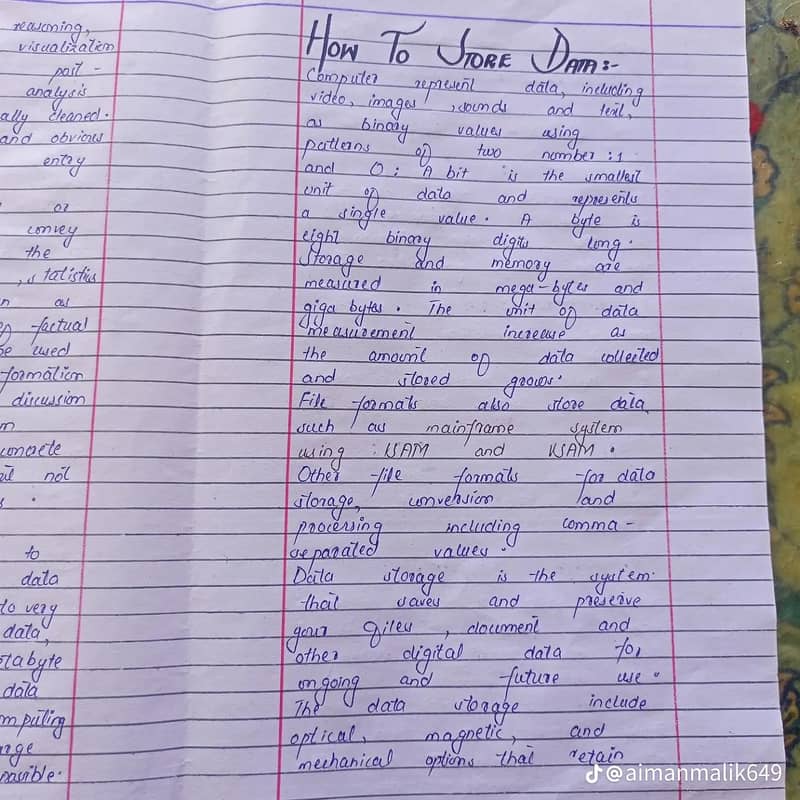 reasoning,
visualization
post -
analysis
ally cleaned.
and obvious
entry
or
convey
the
, statistics
n as
factual
be used
formation
discussion
m
concrete
not
s .
to
data
to very
data,
tabyte
data
mputing
rge
possible.
HOW TO STORE DATA:-
Computer represent data, including
video, images ,sounds and text,
as binary values using
patterns of two number : 1
and 0 : A bit is the smallest
unit of data and represents
a single value. A byte is
eight binary digits long.
Storage and memory are
measured in mega-bytes and
giga bytes. The unit of data
measurement increase as
the amount of data collected
and stored grows.
File formats also store data
such as mainframe system
using : ISAM and VSAM .
Other file formats for data
storage, conversion and
processing including comma -
separated values .
Data storage is the system
that saves and preserve
your giles , document and
other digital data for
ongoing and future use .
The data storage include
optical, magnetic, and
mechanical options that retain
@aimanmalik649